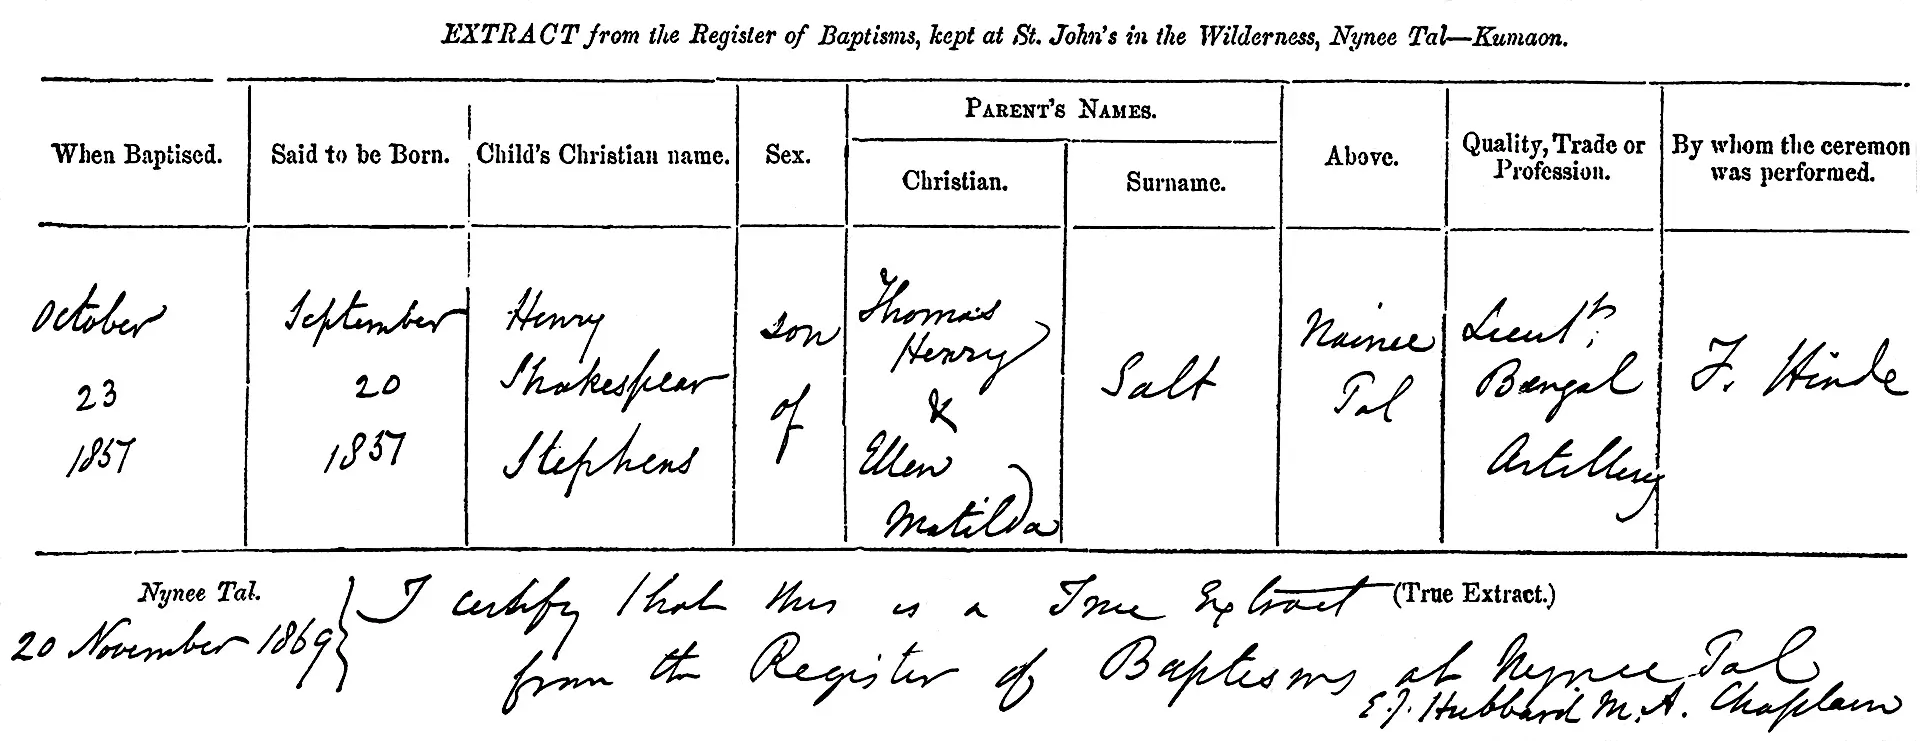 EXTRACT from the Register of Baptisms, kept at St. John's in the Wilderness, Nynee Tal—Kumaon.
When Baptised.
Said to be Born.
Child's Christian name.
Sex.
PARENT'S NAMES.
Christian.
Surname.
Above.
Quality, Trade or
Profession.
By whom the ceremon
was performed.
October
23
1857
September
20
1857
Henry
Shakespear
Stephens
son
of
Thomas
Henry
&
Ellen
Matilda
Salt
Nainee
Tal
Lieut.
Bengal
Artillery
F. Hinde
Nynee Tal.
20 November 1869
I certify that this is a True Extract (True Extract.)
from the Register of Baptisms at Nynee Tal
E.J. Hubbard M.A. Chaplain